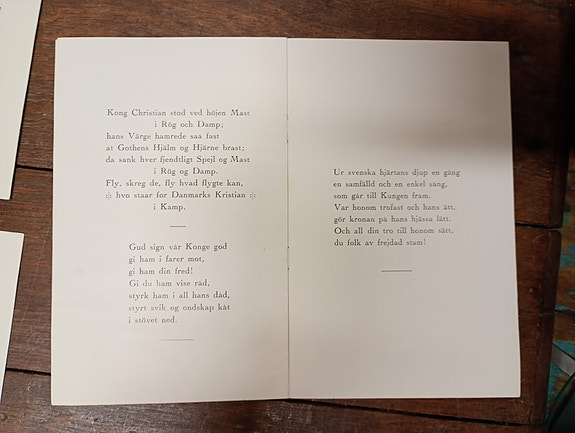 Kong Christian stod ved höjen Mast
i Rög och Damp;
hans Värge hamrede saa fast
at Gothens Hjälm og Hjärne brast;
da sank hver fjendtligt Spejl og Mast
i Rög og Damp.
Fly, skreg de, fly hvad flygte kan,
:|: hvo staar for Danmarks Kristian :|:
i Kamp.
Gud sign vår Konge god
gi ham i farer mot,
gi ham din fred!
Gi du ham vise råd,
styrk ham i all hans dåd,
styrt svik og ondskap kåt
i stövet ned.
Ur svenska hjärtans djup en gång
en samfälld och en enkel sång,
som går till Kungen fram.
Var honom trofast och hans ätt,
gör kronan på hans hjässa lätt.
Och all din tro till honom sätt,
du folk av frejdad stam!